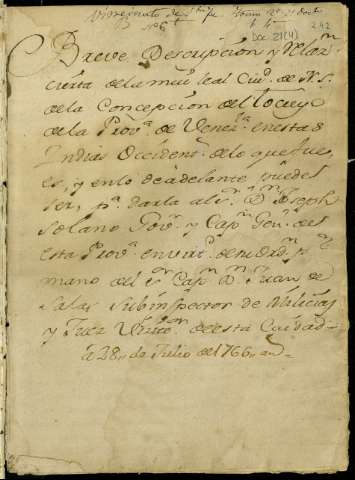 Virreinato de Sta fe
Nº 6º
242
Doc. 21(4)
Breve Descripcion, y Relazn
cierta de la muy leal Ciud. de N. S.
de la Concepcion del Tocuyo
de la Prova. de Venezla. en estas
Indias Occidents. de lo que fue,
es, y en lo de adelante puede
ser, pa. darla al Sr. Dn. Joseph
Solano Govr. y Capn. Genl. de
esta Prova. en virtd. de su ordn. pr.
mano del Sr. Capn. Dn. Juan de
Salas Subinspector de Milicias
y Juez de esta Ciudad
à 28,, de Julio del 766,, as.